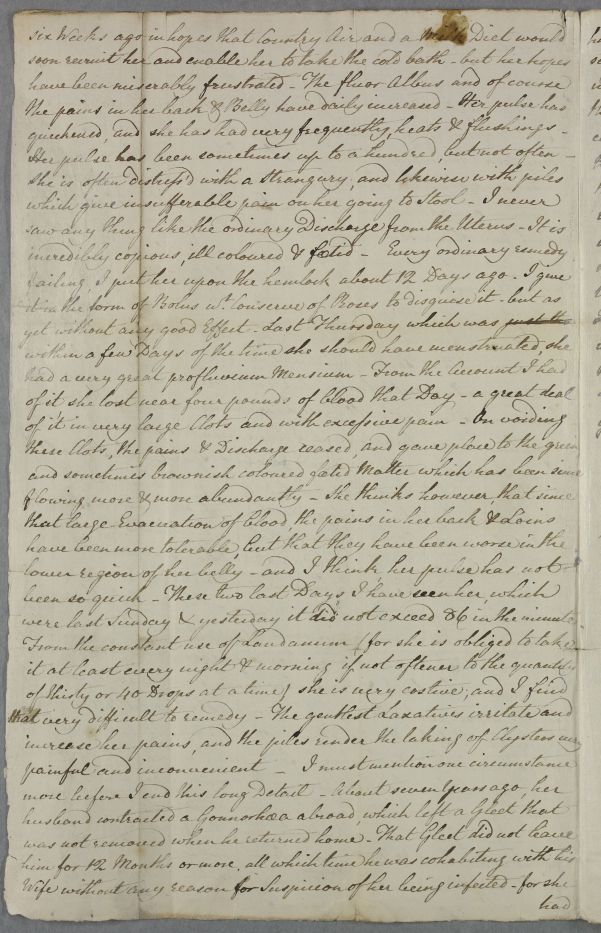 six Weeks ago in hopes that Country Air and a Milk Diet would
soon recruit her and enable her to take the cold bath - but her hopes
have been miserably frustrated - The fluor Albus and of course
the pains in her back & Belly have daily increased - Her pulse has
quickened, and she has had very frequently heats & flushings -
Her pulse has been sometimes up to a hundred, but not often -
She is often distress'd with a Strangury, and likewise with piles
which give insufferable pain on her going to Stool - I never
saw any thing like the ordinary Discharge from the Uterus - It is
incredibly copious, ill coloured & fœtid - Every ordinary remedy
failing I put her upon the hemlock about 12 Days ago - I give
it in the form of Bolus wt. Conserve of Roses to disguise it - but as
yet without any good Effect - Last Thursday which was just the
within a few Days of the time she should have menstruated, she
had a very great profluvium Mensium - From the Account I had
of it she lost near four pounds of blood that Day - a great deal
of it in very large Clots and with excessive pain - On voiding
these Clots, the pains & Discharge ceased, and gave place to the green
and sometimes brownish coloured fetid Matter which has been since
flowing more & more abundantly - She thinks however, that since
that large Evacuation of blood, the pains in her back & Loins
have been more tolerable, but that they have been worse in the
lower region of her belly - and I think her pulse has not
been so quick - These two last Days I have seen her, which
were last Sunday & yesterday it did not exceed 86 in the minute
From the constant use of Laudanum (for she is obliged to take
it at least every night & morning if not oftener to the quantity
of thirty or 40 Drops at a time) she is very costive, and I find
that very difficult to remedy - The gentlest Laxatives irritate and
increase her pains, and the piles render the taking of Clysters very
painful and inconvenient - I must mention one circumstance
more before I end this long Detail - About seven years ago, her
husband contracted a Gonnorhœa abroad, which left a Gleet that
was not removed when he returned home - That Gleet did not leave
him for 12 Months or more, all which time he was cohabiting with his
Wife without any reason for Suspicion of her being infected - for she
had